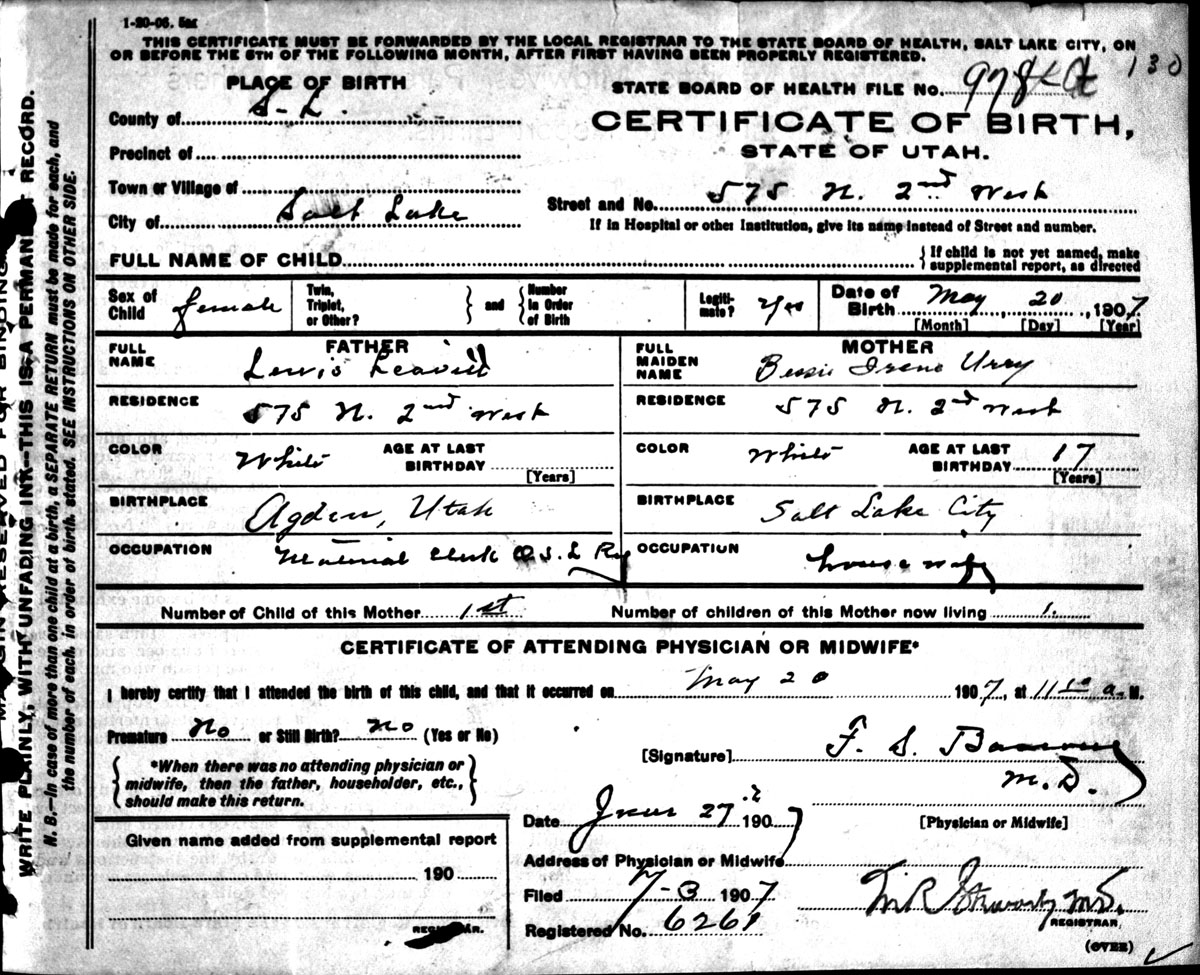 1-20-06. 5m
THIS CERTIFICATE MUST BE FORWARDED BY THE LOCAL REGISTRAR TO THE STATE BOARD OF HEALTH, SALT LAKE CITY, ON
OR BEFORE THE 5TH OF THE FOLLOWING MONTH, AFTER FIRST HAVING BEEN PROPERLY REGISTERED.
130
PLACE OF BIRTH
STATE BOARD OF HEALTH FILE No. 978
County of S. L.
CERTIFICATE OF BIRTH,
Precinct of
STATE OF UTAH.
Town or Village of
Street and No. 575 N. 2nd West
City of Salt Lake
If in Hospital or other Institution, give its name instead of Street and number.
FULL NAME OF CHILD
If child is not yet named, make
supplemental report, as directed
Sex of Child female
Twin, Triplet, or Other?
and
Number in Order of Birth
Legiti-mate? Yes
Date of Birth May 20, 1907
[Month] [Day] [Year]
FATHER
FULL NAME Lewis Leavitt
RESIDENCE 575 N. 2nd West
COLOR White AGE AT LAST BIRTHDAY
[Years]
BIRTHPLACE Ogden, Utah
OCCUPATION Material Clerk O. S. L Ry
MOTHER
FULL MAIDEN NAME Bessie Irene Urry
RESIDENCE 575 N. 2nd West
COLOR White AGE AT LAST BIRTHDAY 17
[Years]
BIRTHPLACE Salt Lake City
OCCUPATION housewife
Number of Child of this Mother 1st Number of children of this Mother now living 1.
CERTIFICATE OF ATTENDING PHYSICIAN OR MIDWIFE*
I hereby certify that I attended the birth of this child, and that it occurred on May 20 1907, at 11 50 a. M.
Premature No or Still Birth? No (Yes or No)
[Signature] F. S.
M. D.
*When there was no attending physician or
midwife, then the father, householder, etc.,
should make this return.
Date June 27 1907
[Physician or Midwife]
Given name added from supplemental report
190
REGISTRAR.
Address of Physician or Midwife
Filed 7-3 1907
Registered No. 6261
M.D.
REGISTRAR
(OVER)
MARGIN RESERVED FOR BINDING
WRITE PLAINLY, WITH UNFADING INK—THIS IS A PERMANENT RECORD.
N. B.—In case of more than one child at a birth, a SEPARATE RETURN must be made for each, and
the number of each, in order of birth, stated. SEE INSTRUCTIONS ON OTHER SIDE.